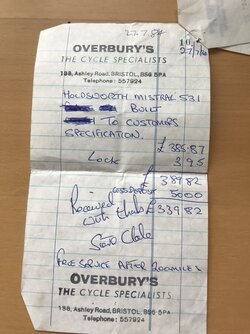 27.7.84
OVERBURY'S
THE CYCLE SPECIALISTS
188, Ashley Road, BRISTOL, BS6 5PA
Telephone: 557924
HOLDSWORTH MISTRAL 531
BUILT
TO CUSTOMERS
SPECIFICATION.
£ 385.87
Lock 3.95
£ 389.82
LESS DEPOSIT 50.00
Received £ 339.82
with thanks
FREE SERVICE AFTER 200 MILES
OVERBURY'S
THE CYCLE SPECIALISTS
188, Ashley Road, BRISTOL, BS6 5PA
Telephone: 557924